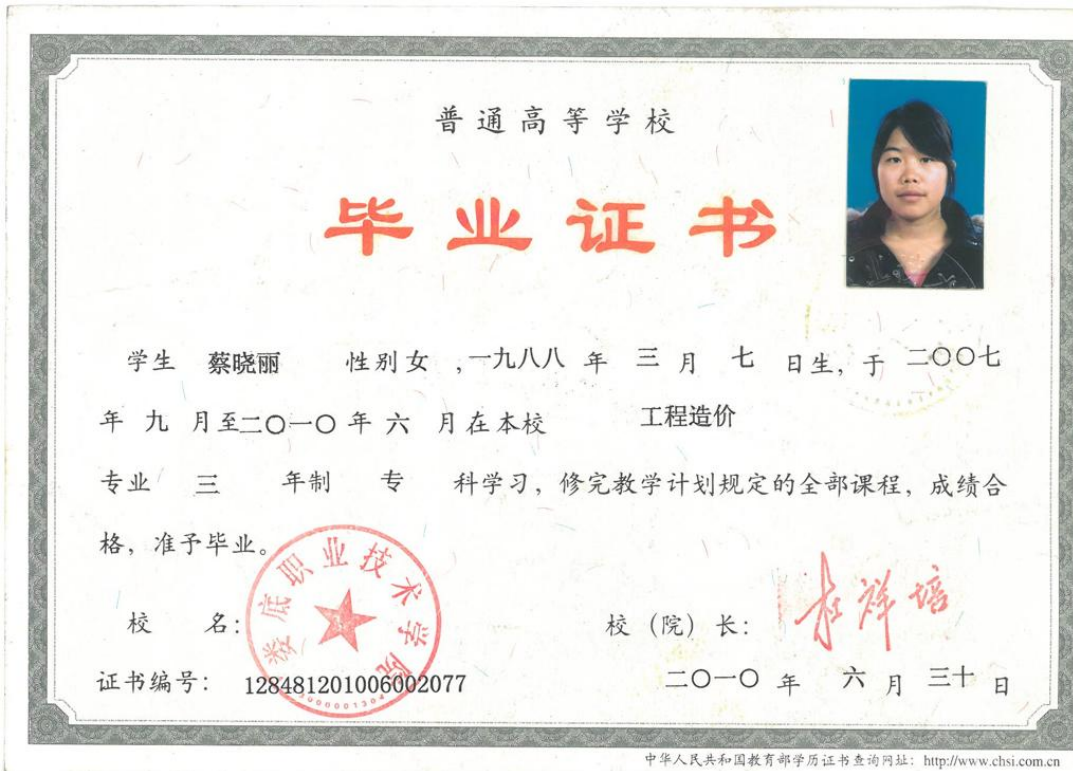 普通高等学校
毕业证书
学生 蔡晓丽 性别 女 ,一九八八 年 三 月 七 日生, 于 二〇〇七
年 九 月至二〇一〇 年 六 月在本校 工程造价
专业 三 年制 专 科学习, 修完教学计划规定的全部课程, 成绩合
格, 准予毕业。
娄底职业技术学院
校 名:
校 (院) 长: 杜祥培
证书编号: 128481201006002077
二〇一〇 年 六 月 三十 日
中华人民共和国教育部学历证书查询网址: http://www.chsi.com.cn